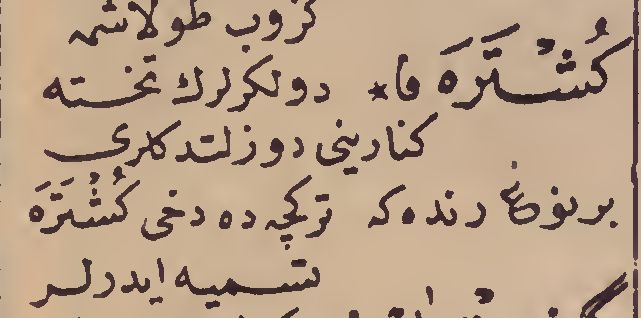 كزوب طولاشمه
كُشْتَرَه فا * دولكرلرك تخته
كنارينى دوزلتدكلرى
بر نوع رنده كه تركچه ده دخى كُشْتَرَه
تسميه ايدرلر